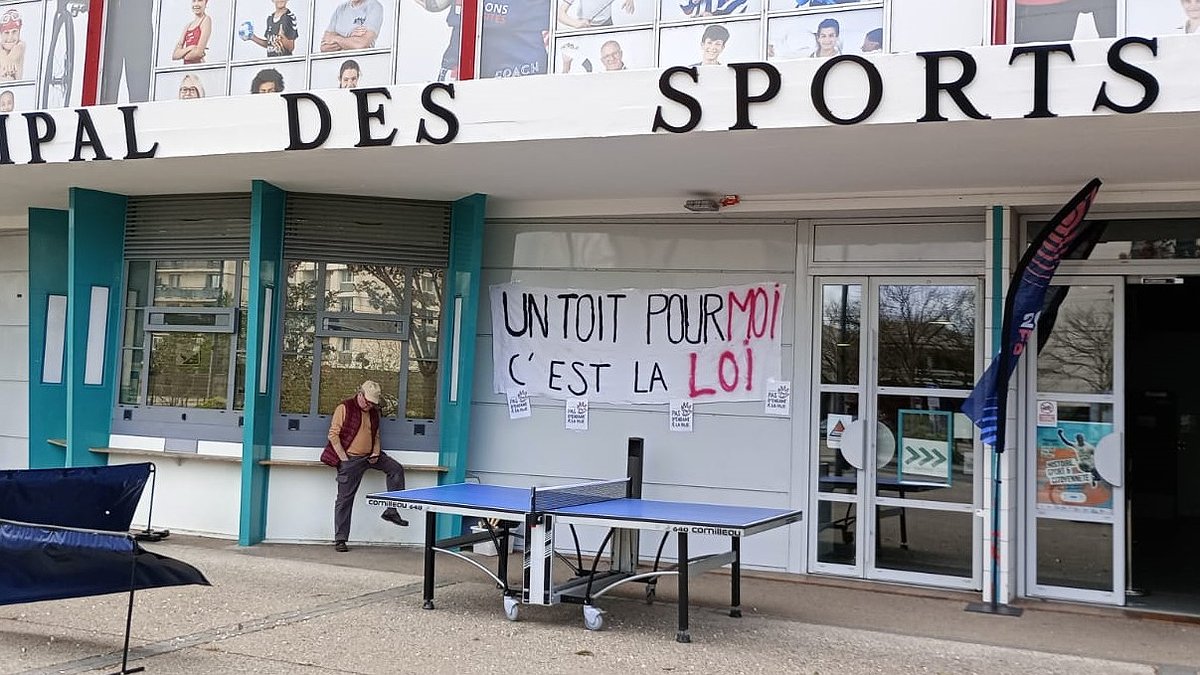 IPAL DES SPORTS
COACH
UN TOIT POUR MOI
C'EST LA LOI
PAS
D'ENFANT
À LA RUE
PAS
D'ENFANT
À LA RUE
PAS
D'ENFANT
À LA RUE
PAS
D'ENFANT
À LA RUE
cornilleau 640
640 cornilleau
HISTOIRE
SPORT &
CITOYENNETÉ